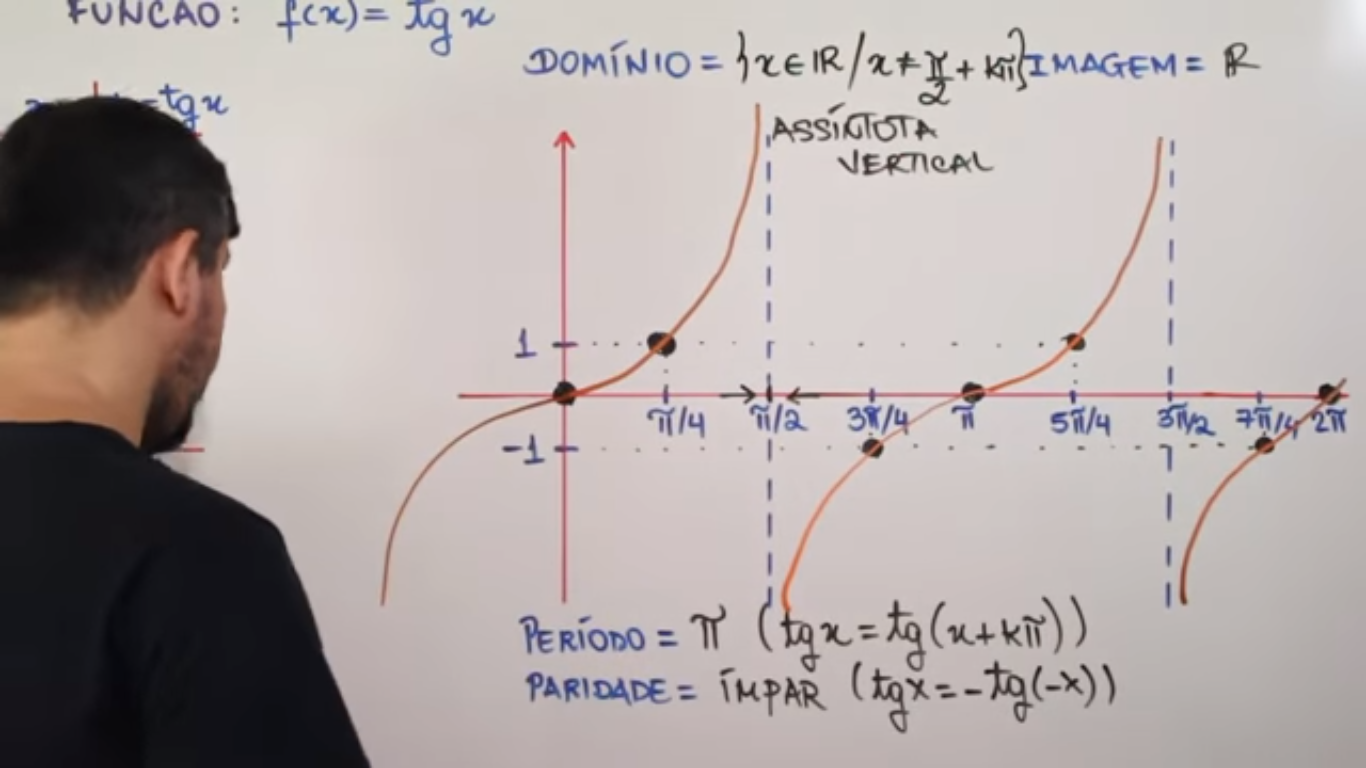 FUNCAO: f(x) = tg x
DOMÍNIO = {x ∈ IR / x ≠ π/2 + kπ} IMAGEM = R
= tg x
ASSÍNTOTA
VERTICAL
1
π/4 π/2 3π/4 π 5π/4 3π/2 7π/4 2π
-1
PERÍODO = π (tg x = tg(x + kπ))
PARIDADE = ÍMPAR (tg x = - tg(-x))